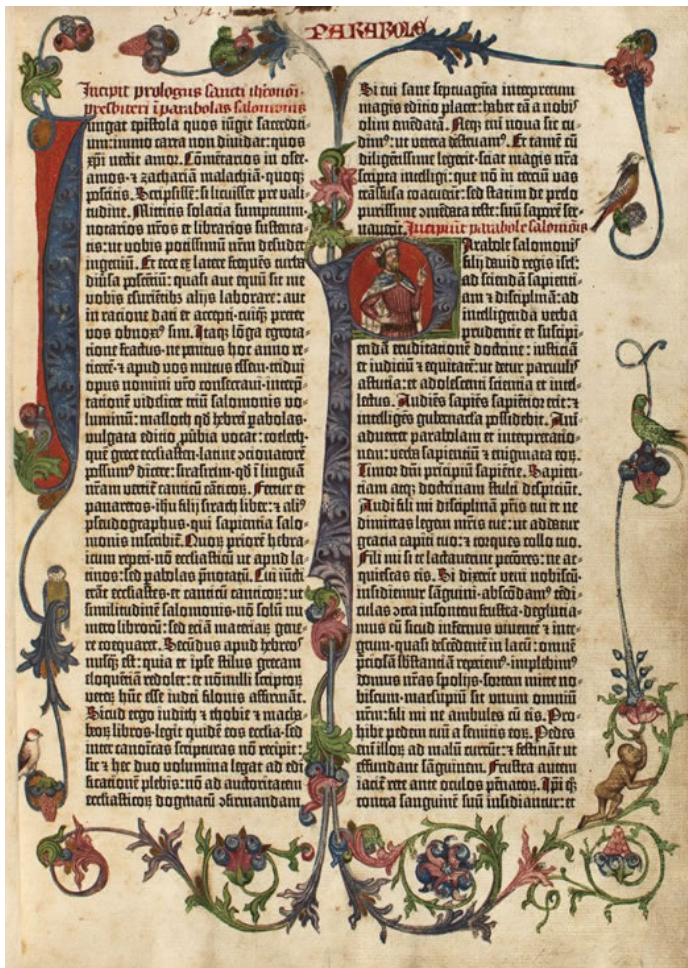 PARABOLE
Incipit prologus sancti iheronimi
presbiteri ī parabolas salomonis
Iungat epistola quos iūgit sacerdoti-
um: immo carta non diuidat: quos
xp̄i nectit amor. Cōmētarios in osee·
amos·⁊ zachariā malachiā·quoqȝ
poscitis. Scripsissē: si licuisset pre vali-
tudine. Mittitis solacia sumptuum·
notarios nr̄os et librarios sustenta-
tis: ut vobis potissimū nr̄m desudet
ingeniū. Et ecce ex latere frequēs turba
diūsa poscētiū: quasi aut equū sit me
vobis esurietibȝ alijs laborare: aut
in racione dati et accepti·cuiqȝ preter
vos obnoxiꝰ sim. Itaqȝ lōga egrota-
tione fractus·ne penitus hoc anno re-
ticerē·⁊ apud vos mutus essem·tridui
opus nomini vr̄o consecraui·interp̄-
tationē videlicet triū salomonis vo-
luminū: masloth qd̄ hebrei pabolas·
vulgata editio p̄ūbia vocat: coeleth·
quē grece ecclīasten·latine ↄcionatorē
possumꝰ dicere: sirasirim·qd̄ ī linguā
nr̄am vertit̄ canticū cāticoꝝ. Fertur et
panaretos·ihu filij sirach liber: ⁊ aliꝰ
pseudographus·qui sapientia salo-
monis inscribit̄. Quoꝝ priorē hebra-
icum reperi·nō ecclīasticū ut apud la-
tinos: sed pabolas p̄notatū. Cui iūcti
erāt ecclīastes·et canticū canticoꝝ: ut
similitudinē salomonis·nō solū nu-
mero librorū: sed eciā materiaꝝ gene-
re coequaret. Secūdus apud hebreos
nusqȝ est: quia et ipse stilus grecam
eloquētiā redolet: et nōnulli scriptoꝝ
veteꝝ hūc esse iudei filonis affirmāt.
Sicud ergo iudith ⁊ thobie ⁊ macha-
beoꝝ libros·legit quidē eos ecclīa·sed
inter canoīcas scripturas nō recipit:
sic ⁊ hec duo volumina legat ad edi-
ficationē plebis: nō ad auctoritatem
ecclīasticoꝝ dogmatū ↄfirmandam
Si cui sane septuagīta interpretum
magis editio placet: habet eā a nobis
olim emēdatā. Neqȝ em̄ noua sic cu-
dimꝰ: ut vetera destruamꝰ. Et tamē cū
diligētissime legerit·sciat magis nr̄a
scripta intelligi: que nō in terciū vas
trāsfusa coacuerit: sed statim de prelo
purissime ↄmēdata teste: suū saporē ser-
uauerit. Incipiūt parabole salomōis
Parabole salomonis
filij dauid regis isrl̄:
ad sciendā sapienti-
am ⁊ disciplinā: ad
intelligendā verba
prudentie et suscipi-
endā eruditacionē doctrine: iusticiā
et iudiciū ⁊ equitatē: ut detur paruulis
astucia: et adolescenti scientia et intel-
lectus. Audiēs sapiēs sapientior erit: ⁊
intelligēs gubernacla possidebit. Ani-
aduertet parabolam et interpretatio-
nem: verba sapientiū ⁊ enigmata eoꝝ.
Timor dn̄i prīcipiū sapiētie. Sapien-
tiam atqȝ doctrinam stulti despiciūt.
Audi fili mi disciplinā pr̄is tui et ne
dimittas legem mr̄is tue: ut addatur
gracia capiti tuo: ⁊ torques collo tuo.
Fili mi si te lactauerint pctōres: ne ac-
quiescas eis. Si dixerīt veni nobiscū·
insidiemur sāguini·abscōdamꝰ tēdi-
culas ↄtra insontem frustra·deglutia-
mus eū sicud infernus viuentē ⁊ inte-
grum·quasi descēdentē in lacū: omnē
p̄ciosā sb̄stanciā reperiemꝰ·implebimꝰ
domus nr̄as spolijs·sortem mitte no-
biscum·marsupiū sit vnum omniū
nr̄m: fili mi ne ambules cū eis. Pro-
hibe pedem tuū a semitis eoꝝ. Pedes
em̄ illoꝝ ad malū currūt: ⁊ festināt ut
effundant sāguinem. Frustra autem
iacit̄ rete ante oculos pēnatoꝝ. Ipi qȝ
contra sanguinē suū insidiantur: et